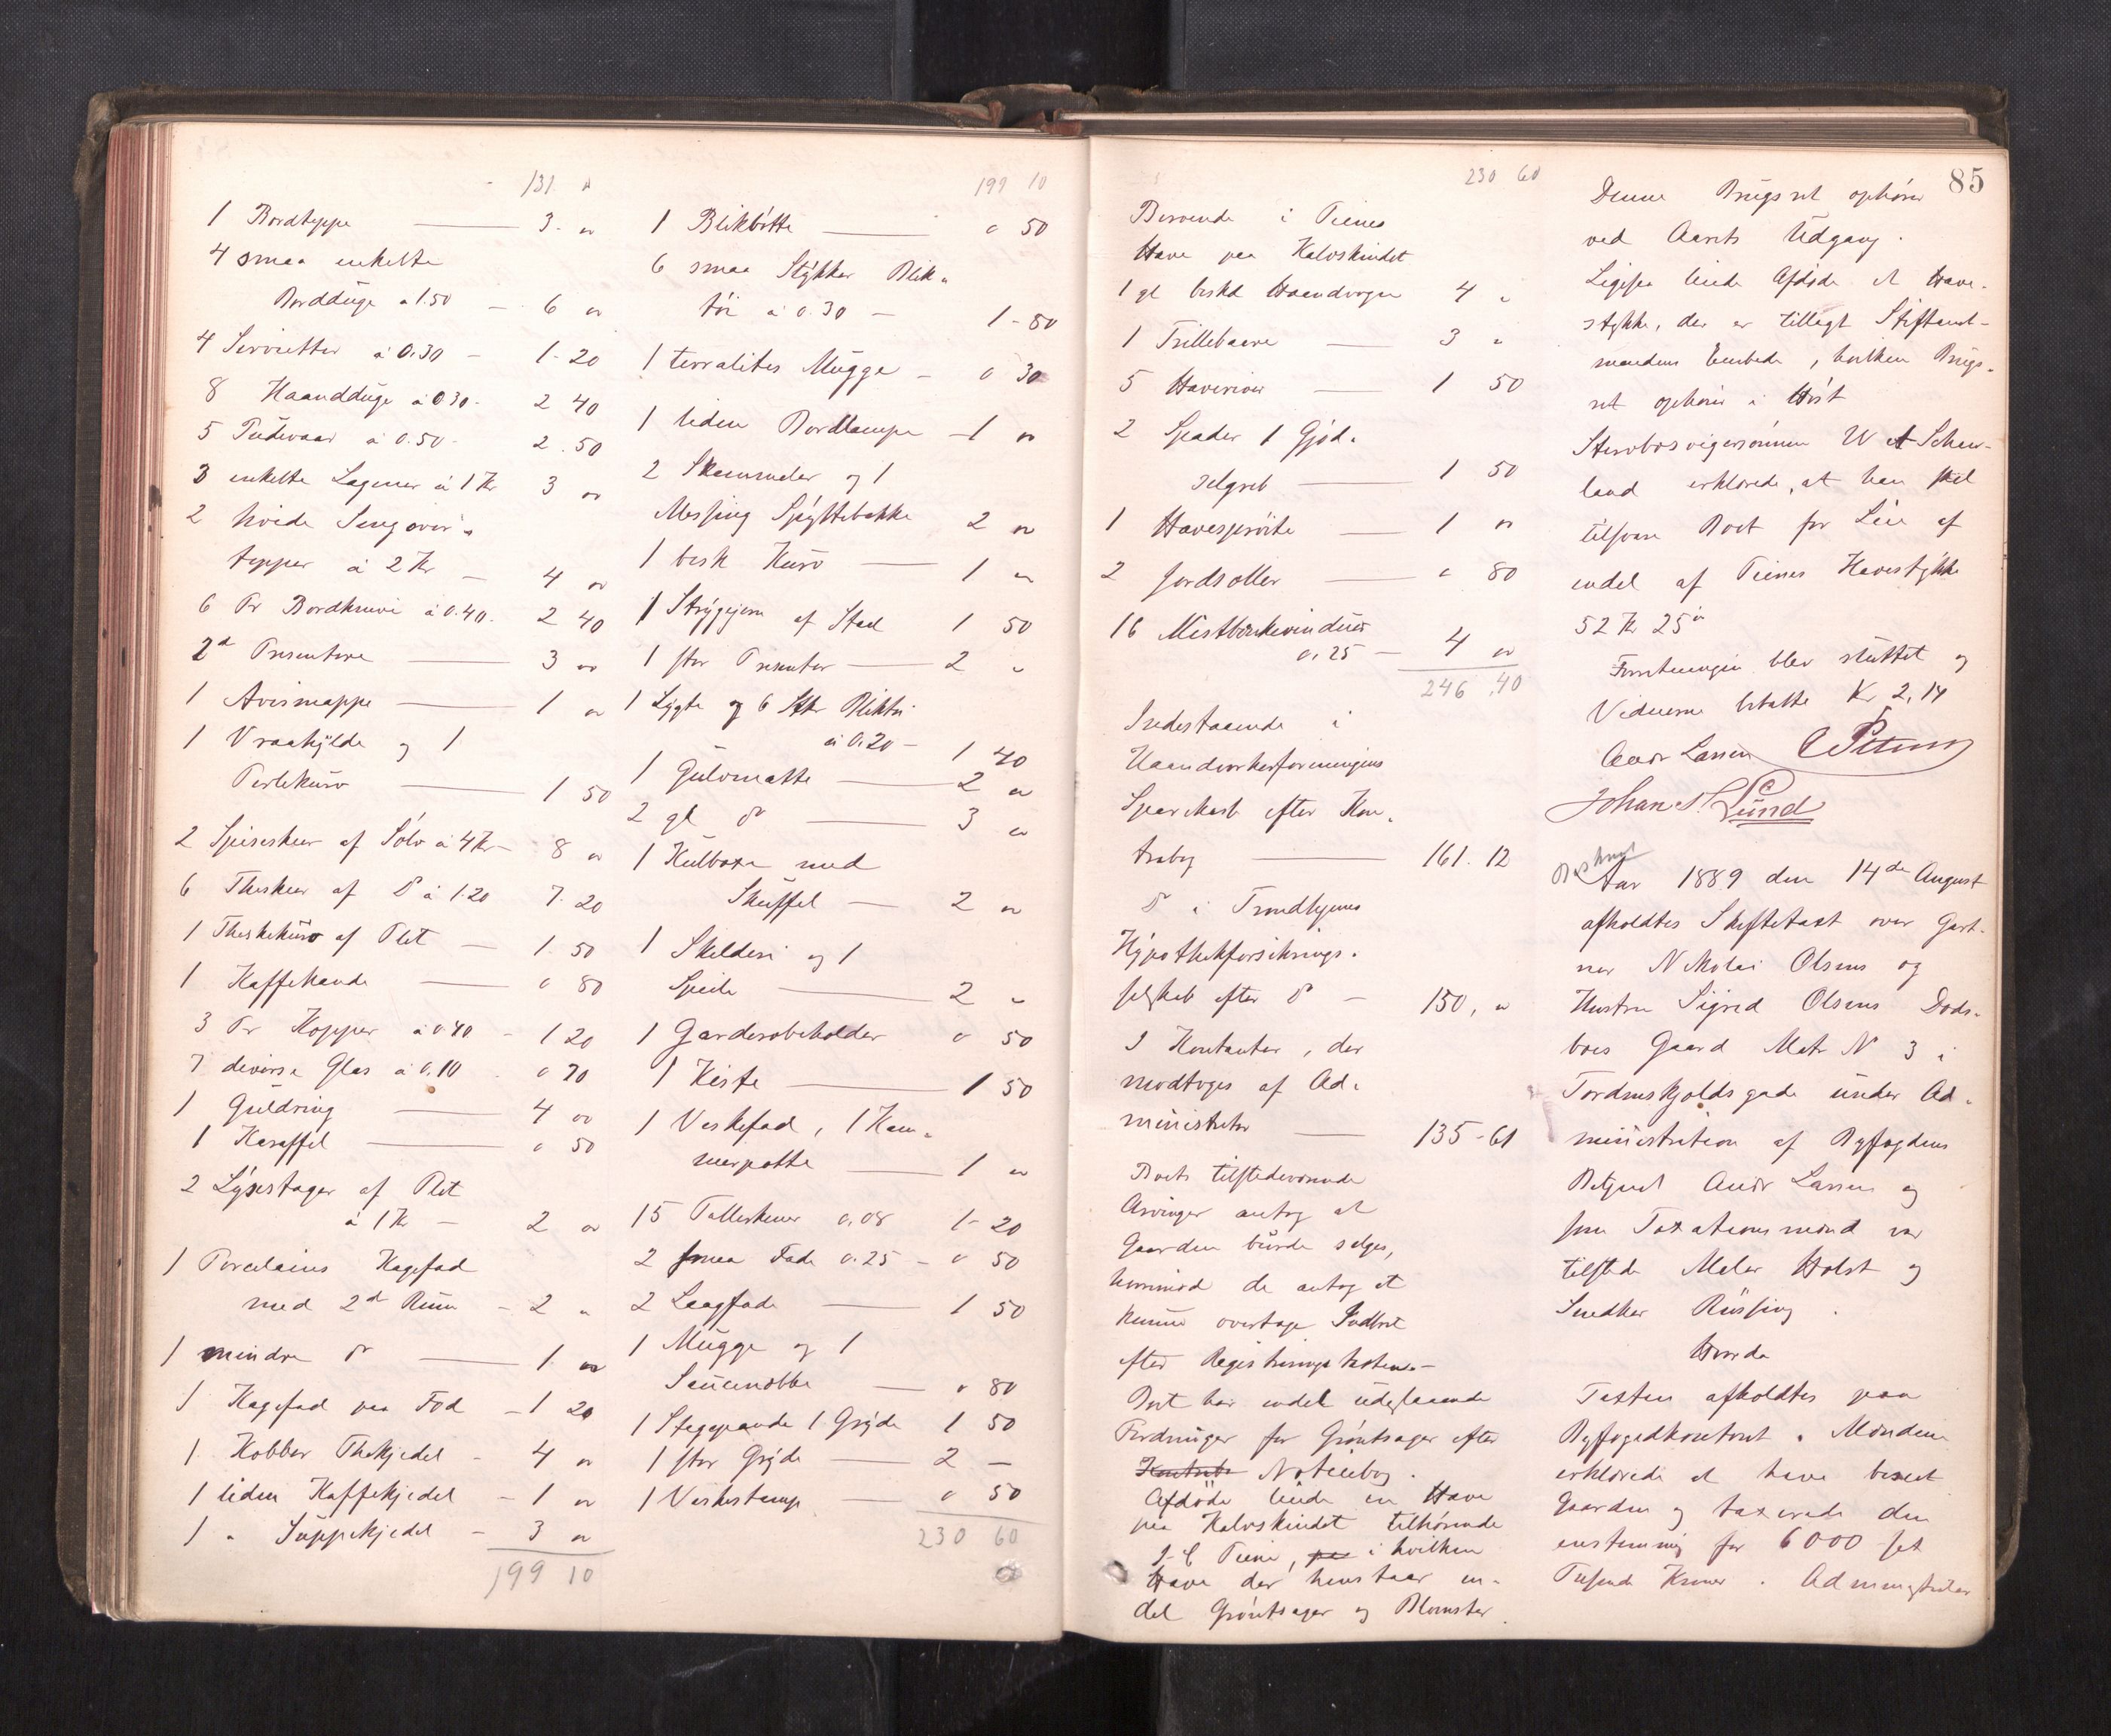 131 "
1 Bordteppe — 3 - "
4 smaa enkelte
Bordduge a 1.50 — 6 "
4 Servietter á 0.30 — 1-20
8 Haandduge á 0.30 - 2 40
5 Pudevaar á 0.50 - 2.50
3 enkelte Lagener á 1 Kr 3 "
2 hvide Sengover-
tepper á 2 Kr — 4 "
6 Pr Bordknive á 0.40 - 2 40
2d Presentere — 3 "
1 Avismappe — 1 "
1 Vraahylde og 1
Perlekurv — 1 50
2 Spiseskeer af Sølv á 4 Kr — 8 "
6 Theskeer af do á 1.20 7.20
1 Theskekurv af Plet — 1.50
1 Kaffekande — " 80
3 Pr Kopper á 0.40 - 1 20
7 diverse Glas á 0.10 - " 70
1 Guldring — 4 "
1 Karaffel — " 50
2 Lysestager af Plet
á 1 Kr — 2 "
1 Porcelains Kagefad
med 2d Rum - 2 "
1 mindre do — 1 "
1 Kagefad paa Fod — 1 20
1 Kobber Thekjedel - 4 "
1 liden Kaffekjedel — 1 "
1 " Suppekjedel - 3 "
199 10
199 10
1 Blikbøtte — " 50
6 smaa Stykker Blik-
tøi á 0.30 — 1-80
1 terralites Mugge — " 30
1 liden Bordlampe — 1 "
2 Skamruler og 1
Messing Spyttebakke 2 "
1 besk Kurv — 1 "
1 Strygejern af Staal 1 50
1 stor Presenter — 2 "
1 Lygte og 6 Stkr Bliktøi
á 0.20 — 1 40
1 Gulvmatte — 2 "
2 gl do — 3 "
1 Kulboxe med
Skuffel — 2 "
1 Skilderi og 1
Speile — 2 "
1 Garderobeholder " 50
1 Kiste — 1 50
1 Vaskefad, 1 Kam-
merpotte — 1 "
15 Tallerkener 0.08 1-20
2 smaa Fade 0.25 — " 50
2 Laagfade — 1 50
1 Mugge og 1
Saucenebbe — " 80
1 Stegepande 1 Gryde 1 50
1 stor Gryde — 2 —
1 Vaskestamp — " 50
230 60
85
230 60
Beroende i Pienes
Have paa Kalvskindet
1 gl beskd Haandvogn 4 "
1 Trillebaare — 3 "
5 Haveriver — 1 50
2 Spader 1 Gjød-
selgreb — 1 50
1 Havesprøite — 1 "
2 Jordsoller — " 80
16 Mistbænkevinduer
0.25 — 4 "
246.40
Indestaaende i
Haandverkerforeningens
Sparekasse efter Kon-
trabog — 161.12
do i Trondhjems
Hypothekforsikrings-
selskab efter do — 150, "
I Kontanter, der
modtoges af Ad-
ministrator — 135-61
Boets tilstedeværende
Arvinger antog at
Gaarden burde sælges,
hvorimod de antog at
kunne overtage Indboet
efter Registreringstaxten.-
Boet har endel udestaaende
Fordringer for Grøntsager efter
Kontrab Noticebog.
Afdøde leiede en Have
paa Kalvskindet tilhørende
J. C Piene, paa i hvilken
Have der henstaar en-
del Grøntsager og Blomster.
Denne Brugsret ophører
ved Aarets Udgang.
Ligesaa leiede Afdøde et Have-
stykke, der er tillagt Stiftamt-
mandens Embede, hvilken Brugs-
ret ophører i Høst
Stervbosvigersønnen W A Schau-
land erklærede, at han skal
tilsvare Boet for Leie af
endel af Pienes Havestykke
52 Kr 25 ø
Forretningen blev sluttet og
Vidnerne betalte Kr 2,14
Andr Larsen C Petersen
Johan P. Lund
Aar 1889 den 14de August
afholdtes Skiftetaxt over Gart-
ner Nikolai Olsens og
Hustru Sigrid Olsens Døds-
boes Gaard Matr N 3 i
Tordenskjoldsgade under Ad-
ministration af Byfogdens
Betjent Andr Larsen og
som Taxationsmænd var
tilstede Maler Holst og
Snedker Rüssing.
Hvorda
Taxten afholdtes paa
Byfogedkontoret. Mændene
erklærede at have beseet
Gaarden og taxerede den
enstemmig for 6000 sex
Tusende Kroner. Administrator